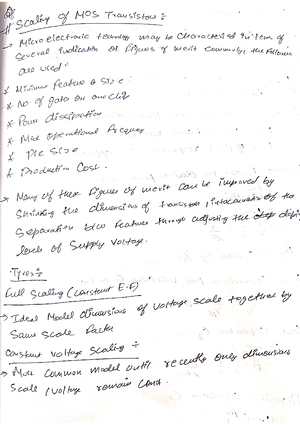 # Scaling of MOS Transistors :-
→ Micro electronic may be Characterised in term of
several indicators or figures of merit commonly, the following
are used :
* Minimum feature size
* No of gates on one chip
* Power dissipation
* Max operational frequency
* Die Size
* Production Cost.
→ Many of these figures of merit can be improved by
Shrinking the dimensions of transistors, interconnects of the
Separation b/w features through adjusting the
levels of Supply Voltage.
Types :-
full Scaling (Constant E.F)
→ Ideal Model dimensions of voltage scale together by
Same Scale factor
Constant voltage Scaling :-
→ Most Common model until recently only dimensions
Scale, voltage remain Const.